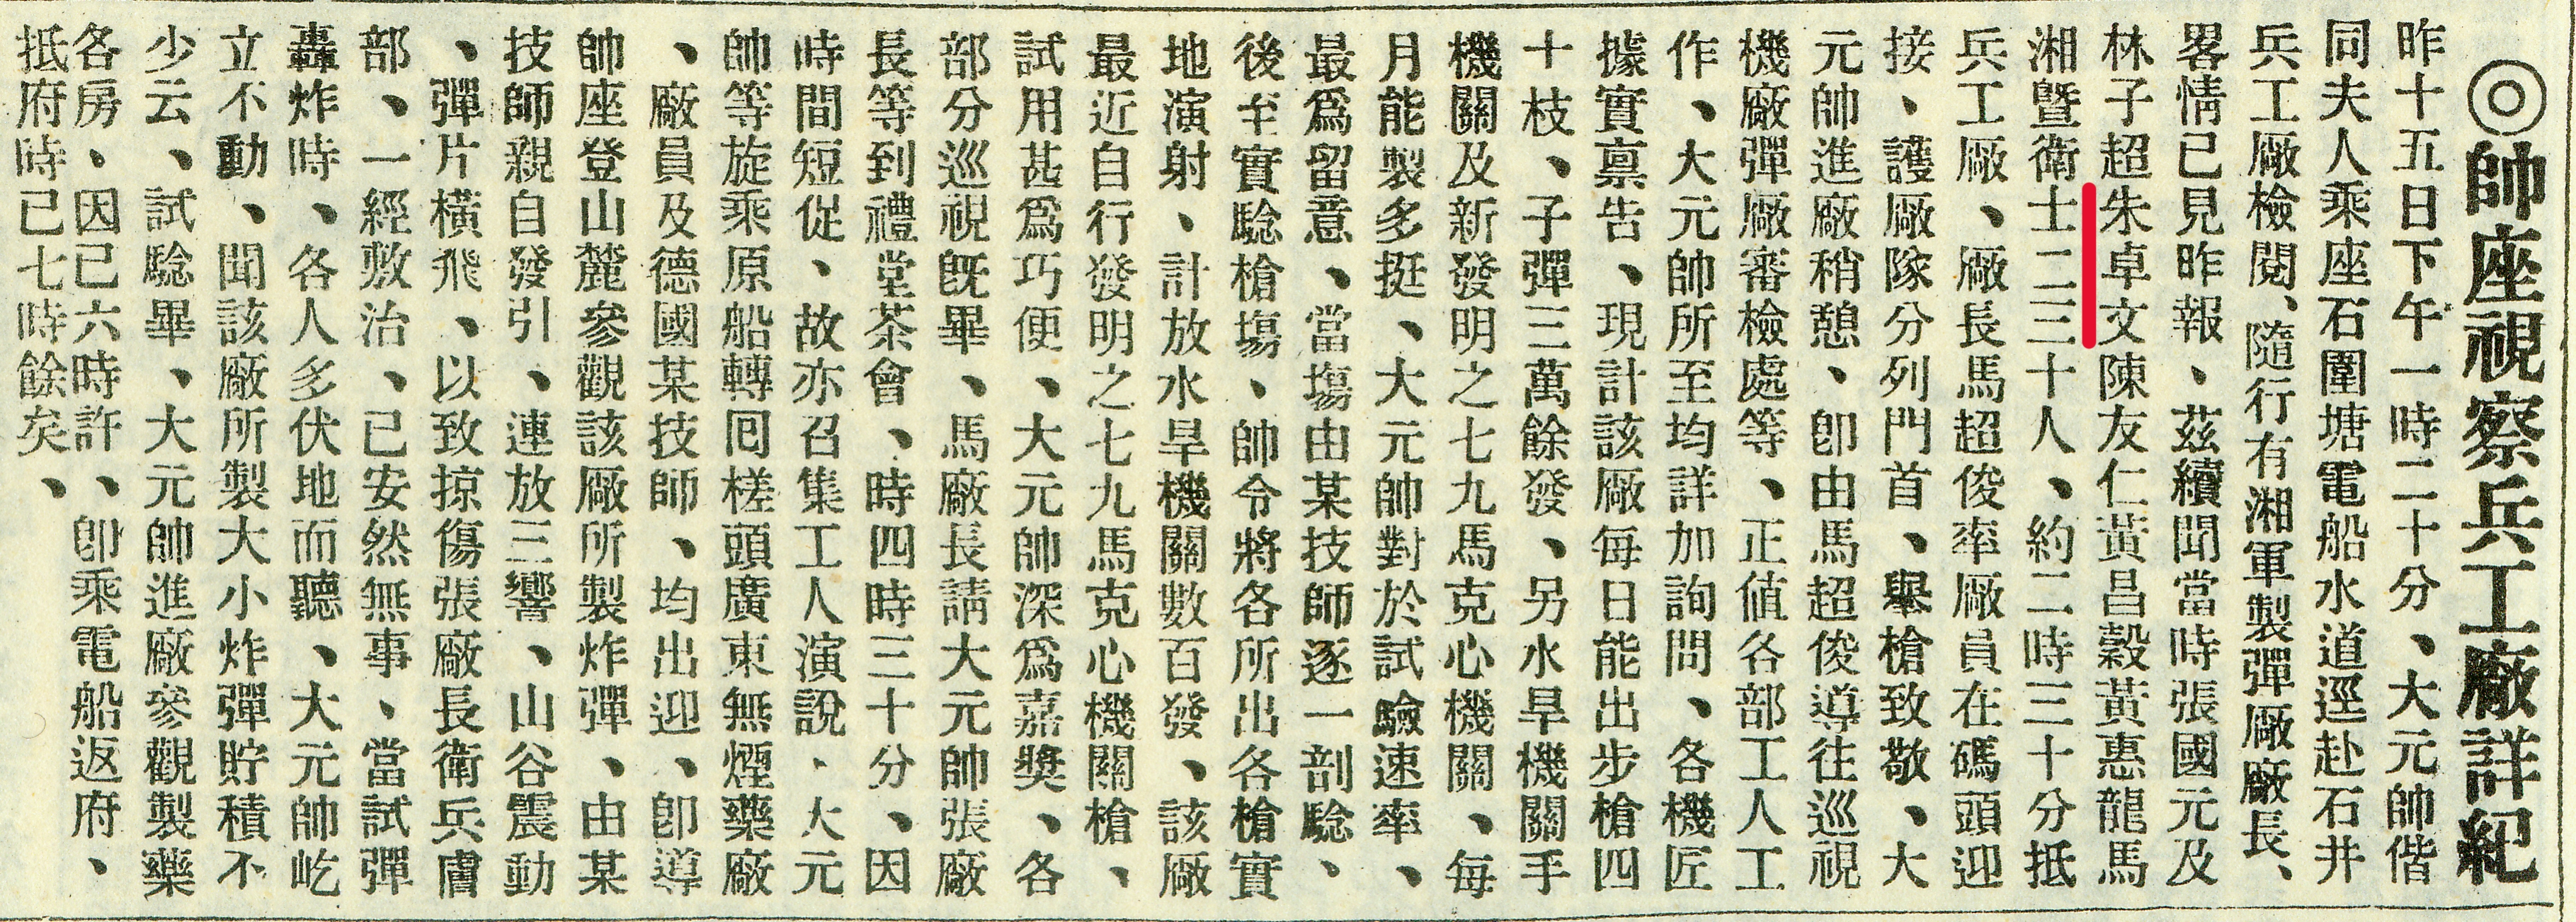 ◎帥座視察兵工廠詳紀
昨十五日下午一時二十分、大元帥偕
同夫人乘座石圍塘電船水道逕赴石井
兵工廠檢閱、隨行有湘軍製彈廠廠長、
畧情已見昨報、茲續聞當時張國元及
林子超朱卓文陳友仁黃昌穀黃惠龍馬
湘暨衛士二三十人、約二時三十分抵
兵工廠、廠長馬超俊率廠員在碼頭迎
接、護廠隊分列門首、舉槍致敬、大
元帥進廠稍憩、卽由馬超俊導往巡視
機廠彈廠審檢處等、正値各部工人工
作、大元帥所至均詳加詢問、各機匠
據實禀告、現計該廠每日能出步槍四
十枝、子彈三萬餘發、另水旱機關手
機關及新發明之七九馬克心機關、每
月能製多挺、大元帥對於試驗速率、
最爲留意、當塲由某技師逐一剖騐、
後至實騐槍塲、帥令將各所出各槍實
地演射、計放水旱機關數百發、該廠
最近自行發明之七九馬克心機關槍、
試用甚爲巧便、大元帥深爲嘉獎、各
部分巡視旣畢、馬廠長請大元帥張廠
長等到禮堂茶會、時四時三十分、因
時間短促、故亦召集工人演說、大元
帥等旋乘原船轉囘槎頭廣東無煙藥廠
、廠員及德國某技師、均出迎、卽導
帥座登山麓參觀該廠所製炸彈、由某
技師親自發引、連放三響、山谷震動
、彈片橫飛、以致掠傷張廠長衛兵膚
部、一經敷治、已安然無事、當試彈
轟炸時、各人多伏地而聽、大元帥屹
立不動、聞該廠所製大小炸彈貯積不
少云、試騐畢、大元帥進廠參觀製藥
各房、因已六時許、卽乘電船返府、
抵府時已七時餘矣、